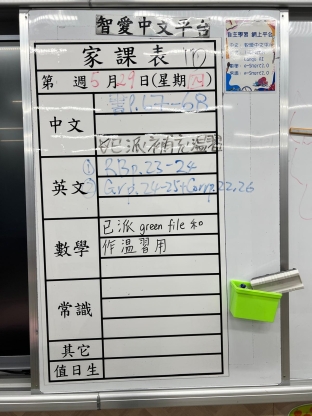 智愛中文平台
家課表
第 週5月29日(星期四)
中文
書P.67-68
已派補充温習
英文
① RBp.23-24
② Grp.24-25+Comp.22,26
數學
已派 green file 和
作溫習用
常識
其它
值日生
自主學習 網上平台